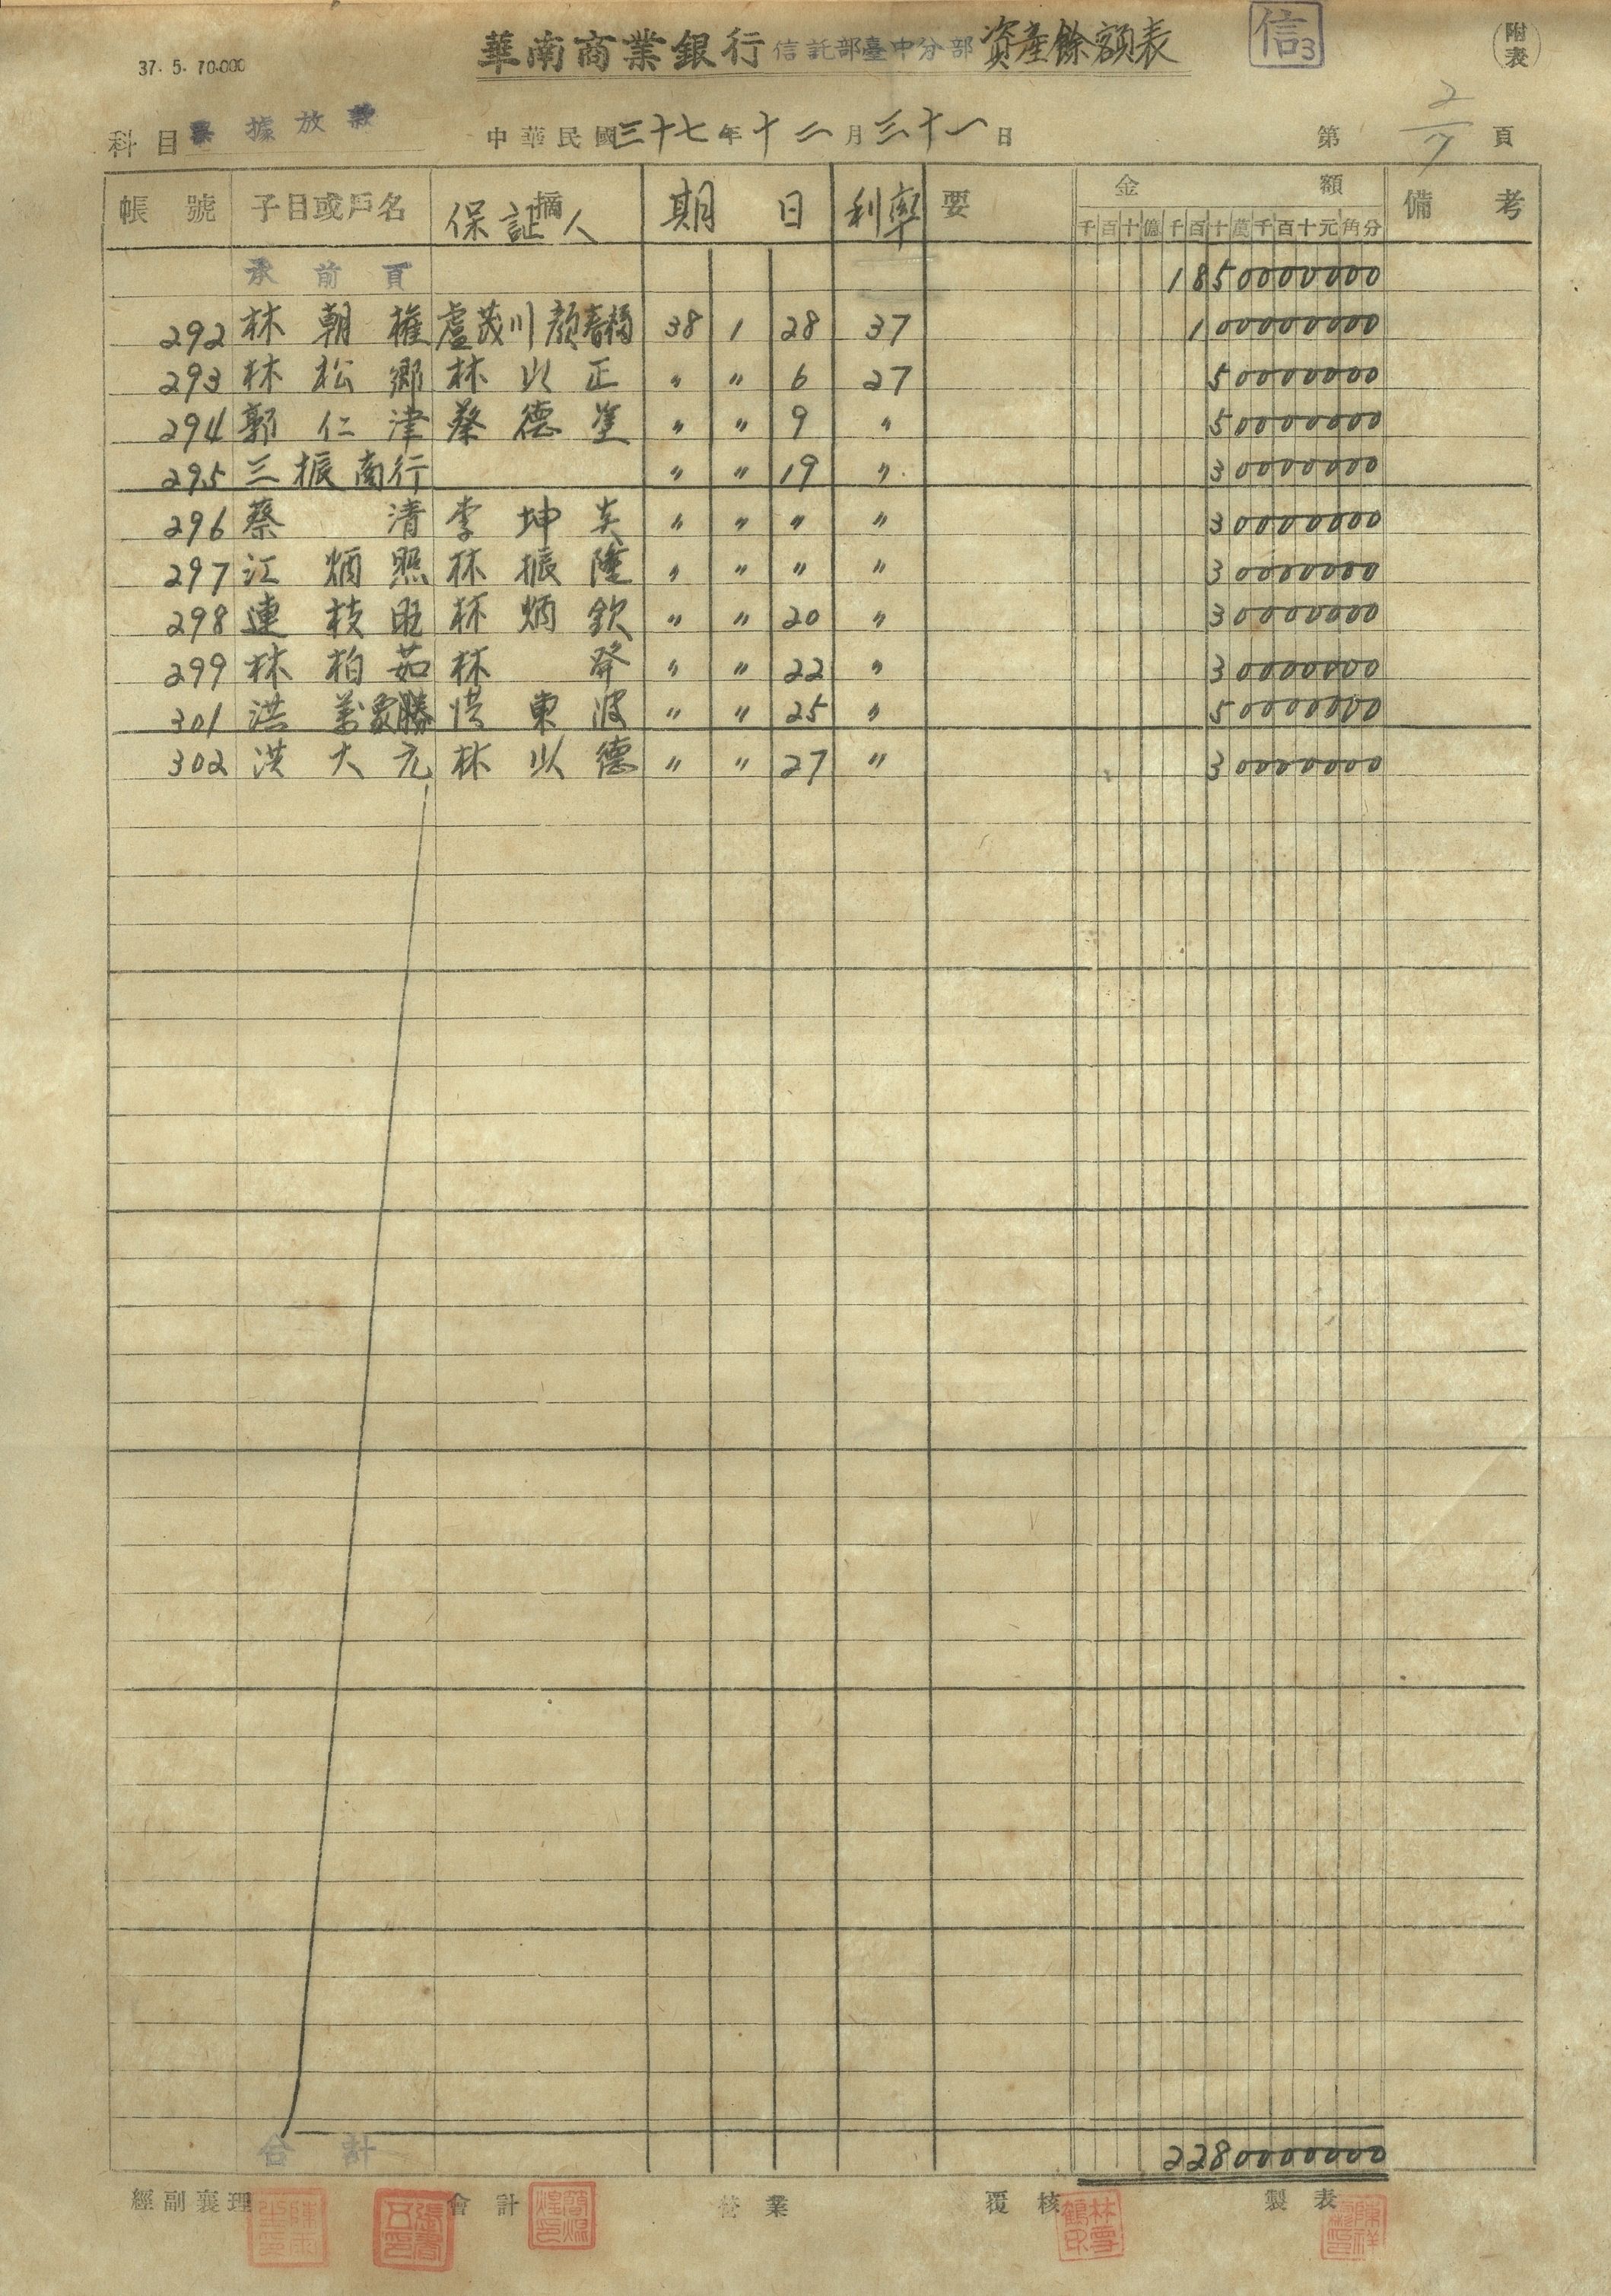 華南商業銀行信託部臺中分部資產餘額表
信3
(附表)
37. 5. 70.000
科目 票據放款 中華民國三十七年十二月三十一日 第 2/7 頁
帳號 子目或戶名 摘 保証人 期日 利率 要 金額 備考
千百十億千百十萬千百十元角分
承前頁 1850000000
292 林朝權 盧茂川 顏春福 38 1 28 37 100000000
293 林松鄉 林以正 〃 〃 6 27 50000000
294 郭仁津 蔡德鋻 〃 〃 9 〃 50000000
295 三振商行 〃 〃 19 〃 30000000
296 蔡清 李坤炎 〃 〃 〃 〃 30000000
297 江炳照 林振隆 〃 〃 〃 〃 30000000
298 連枝旺 林炳欽 〃 〃 20 〃 30000000
299 林柏茹 林發 〃 〃 22 〃 30000000
301 洪勝 洪東波 〃 〃 25 〃 50000000
302 洪大元 林以德 〃 〃 27 〃 30000000
合計 2280000000
經副襄理 會計 營業 覆核 製表